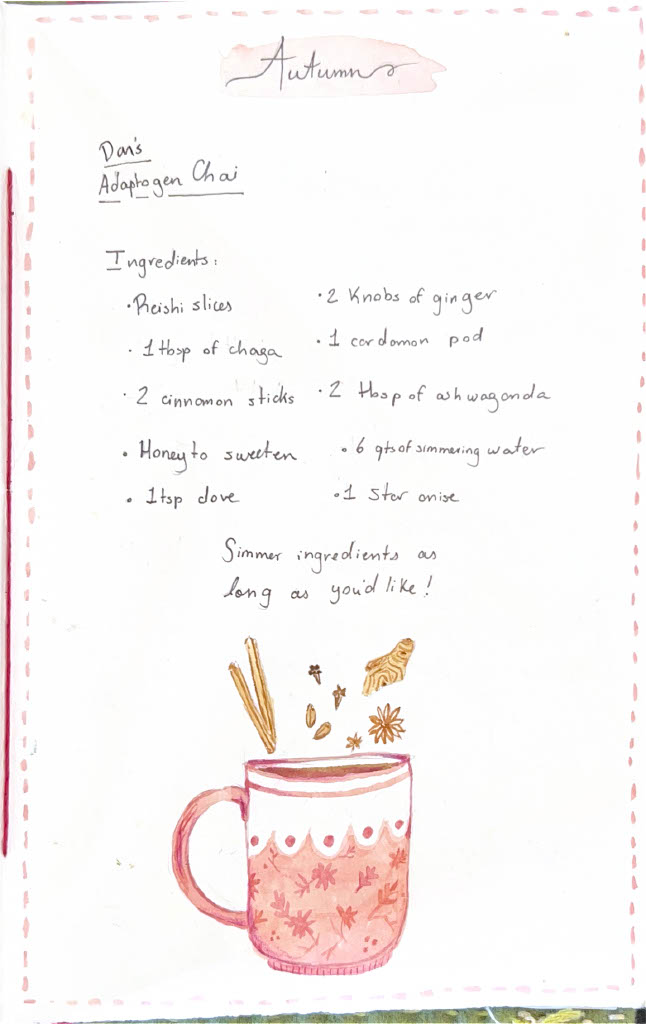 Autumn
Dan's
Adaptogen Chai
Ingredients:
• Reishi slices
• 1 tbsp of chaga
• 2 cinnamon sticks
• Honey to sweeten
• 1 tsp clove
• 2 Knobs of ginger
• 1 cardamon pod
• 2 tbsp of ashwaganda
• 6 qts of simmering water
• 1 Star anise
Simmer ingredients as
long as you'd like!